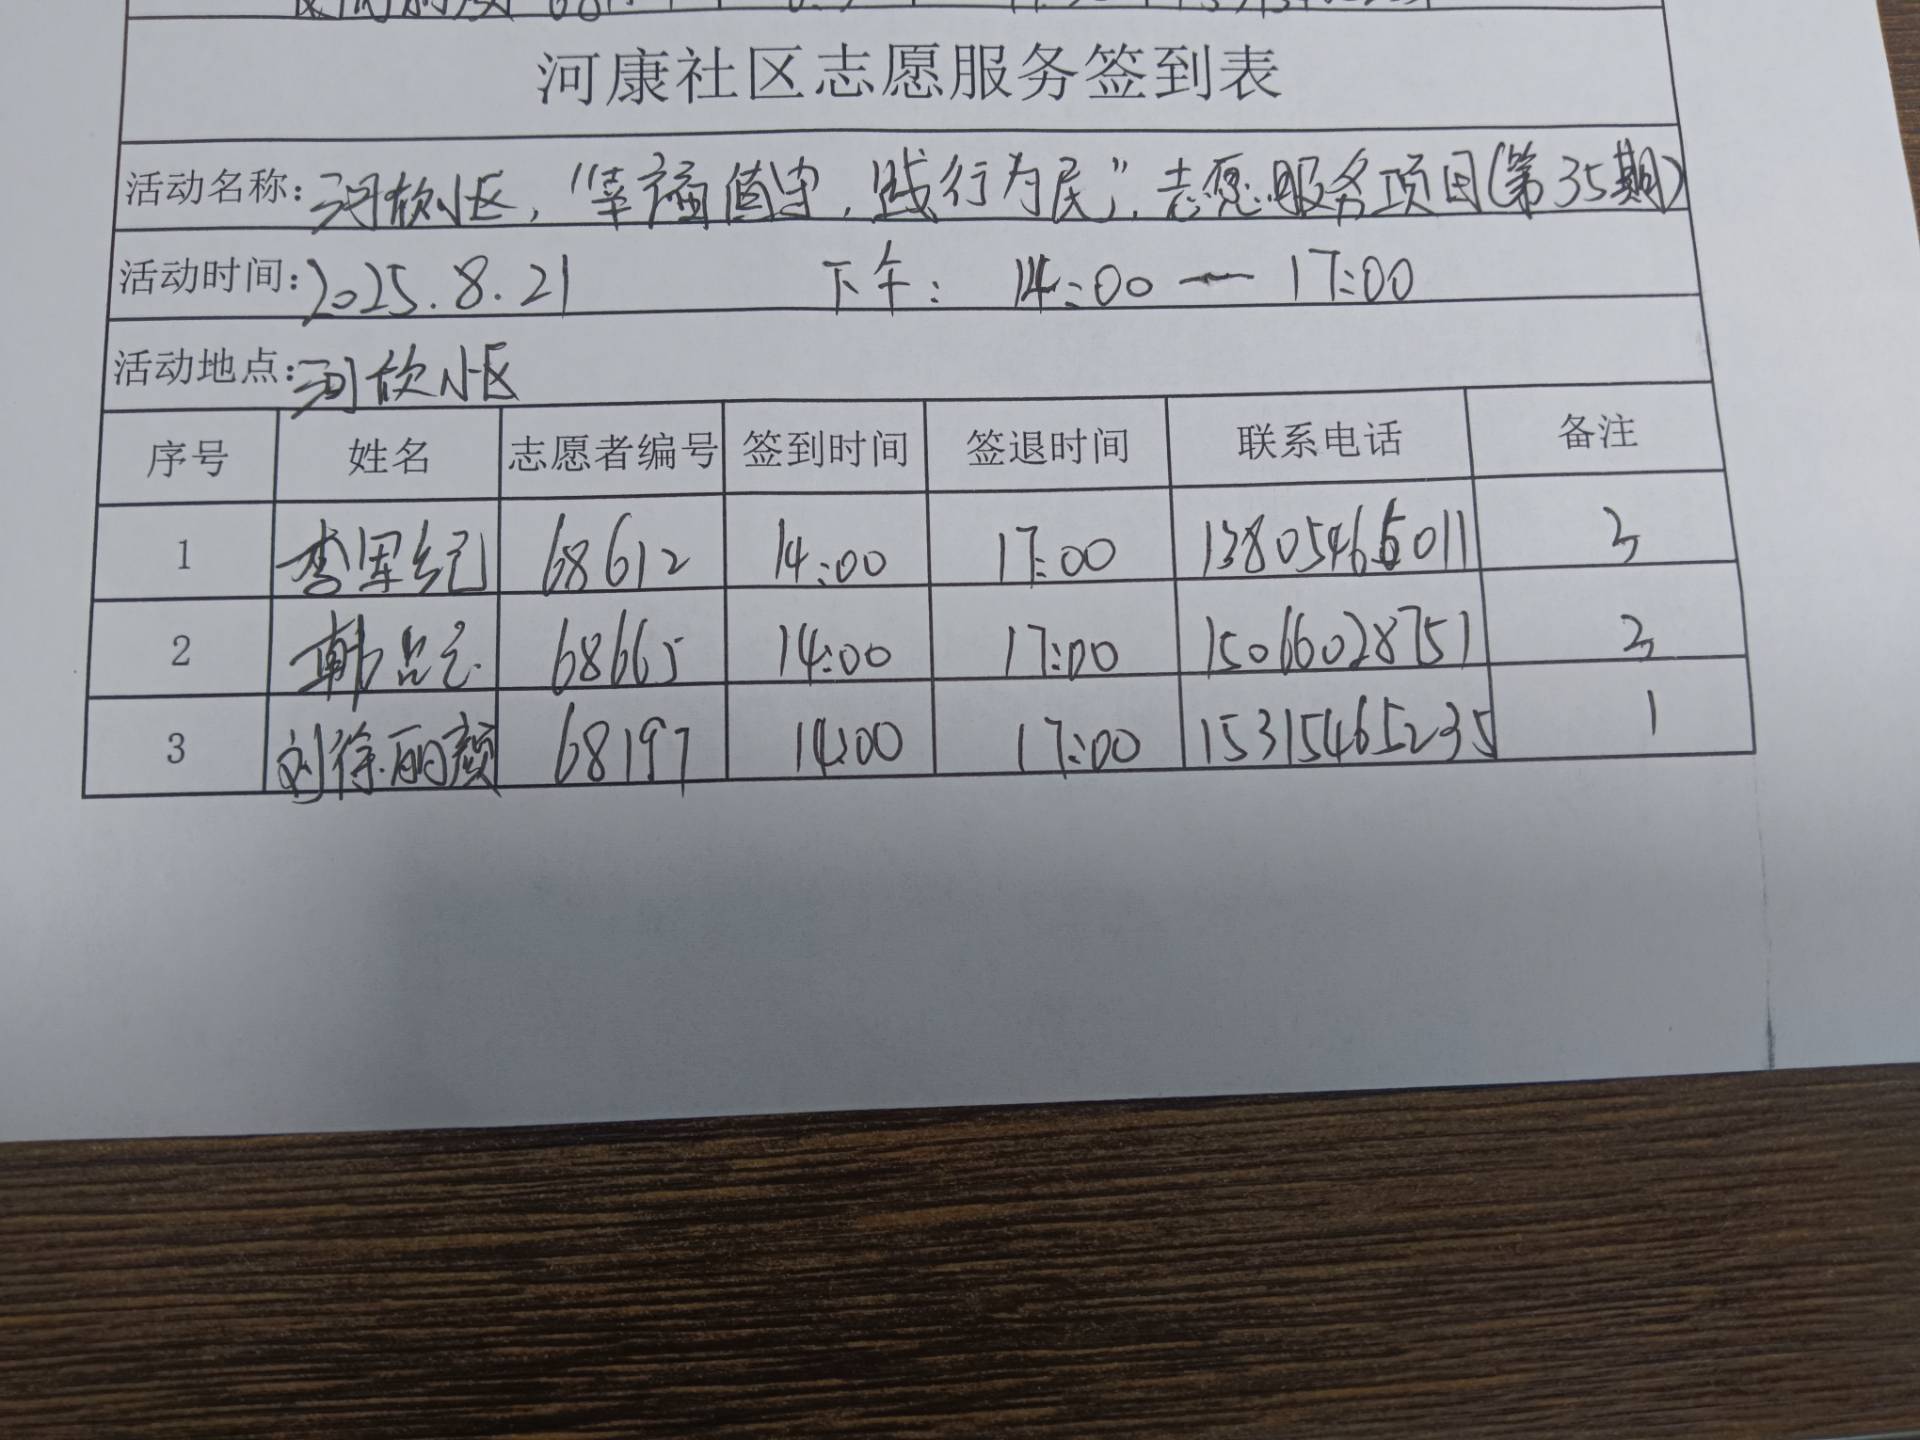 河康社区志愿服务签到表
活动名称:河欣小区,“幸福值守,践行为民”,志愿服务项目(第35期)
活动时间:2025.8.21 下午: 14:00 — 17:00
活动地点:河欣小区
序号 姓名 志愿者编号 签到时间 签退时间 联系电话 备注
1 李军纪 68612 14:00 17:00 13805465011 3
2 韩 68665 14:00 17:00 15066028751 3
3 刘徐丽颜 68197 14:00 17:00 15315465235 1